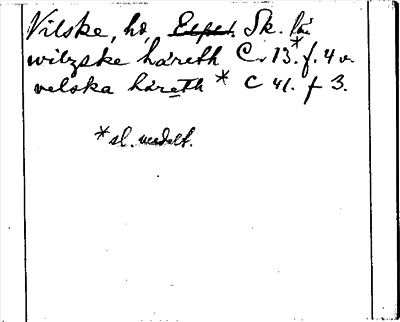 Vilske, hd, Sk. län
wilzske häreth C. 13.* f. 4 v.
velska häreth * C 41. f 3.
* sl. medelt.